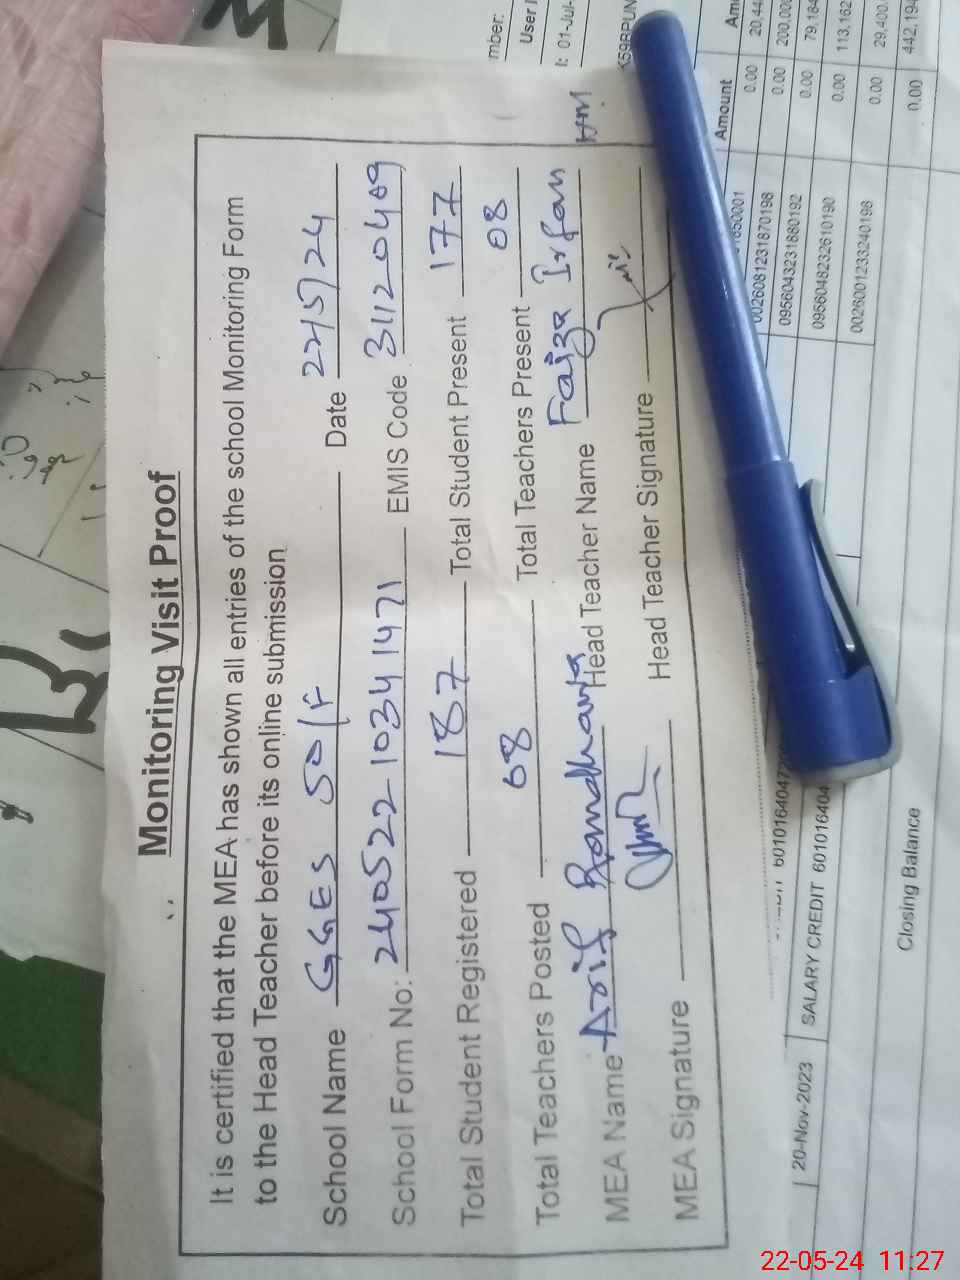 Monitoring Visit Proof
It is certified that the MEA has shown all entries of the school Monitoring Form
to the Head Teacher before its online submission
School Name GGES 50/F Date 22/5/24
School Form No: 240522 1034 1471 EMIS Code 31120409
Total Student Registered 187 Total Student Present 177
Total Teachers Posted 08 Total Teachers Present 08
MEA Name Head Teacher Name Faiza Irfan HM
MEA Signature Head Teacher Signature
mber:
User I
01-Jul-
Amount
0.00
0026081231870198 0.00 200,00
0956043231680192 0.00 79,164
0956048232610190 0.00 113,162
0026001233240198 0.00 29,400.
20-Nov-2023 SALARY CREDIT 601016404
Closing Balance 0.00 442,194
22-05-24 11:27